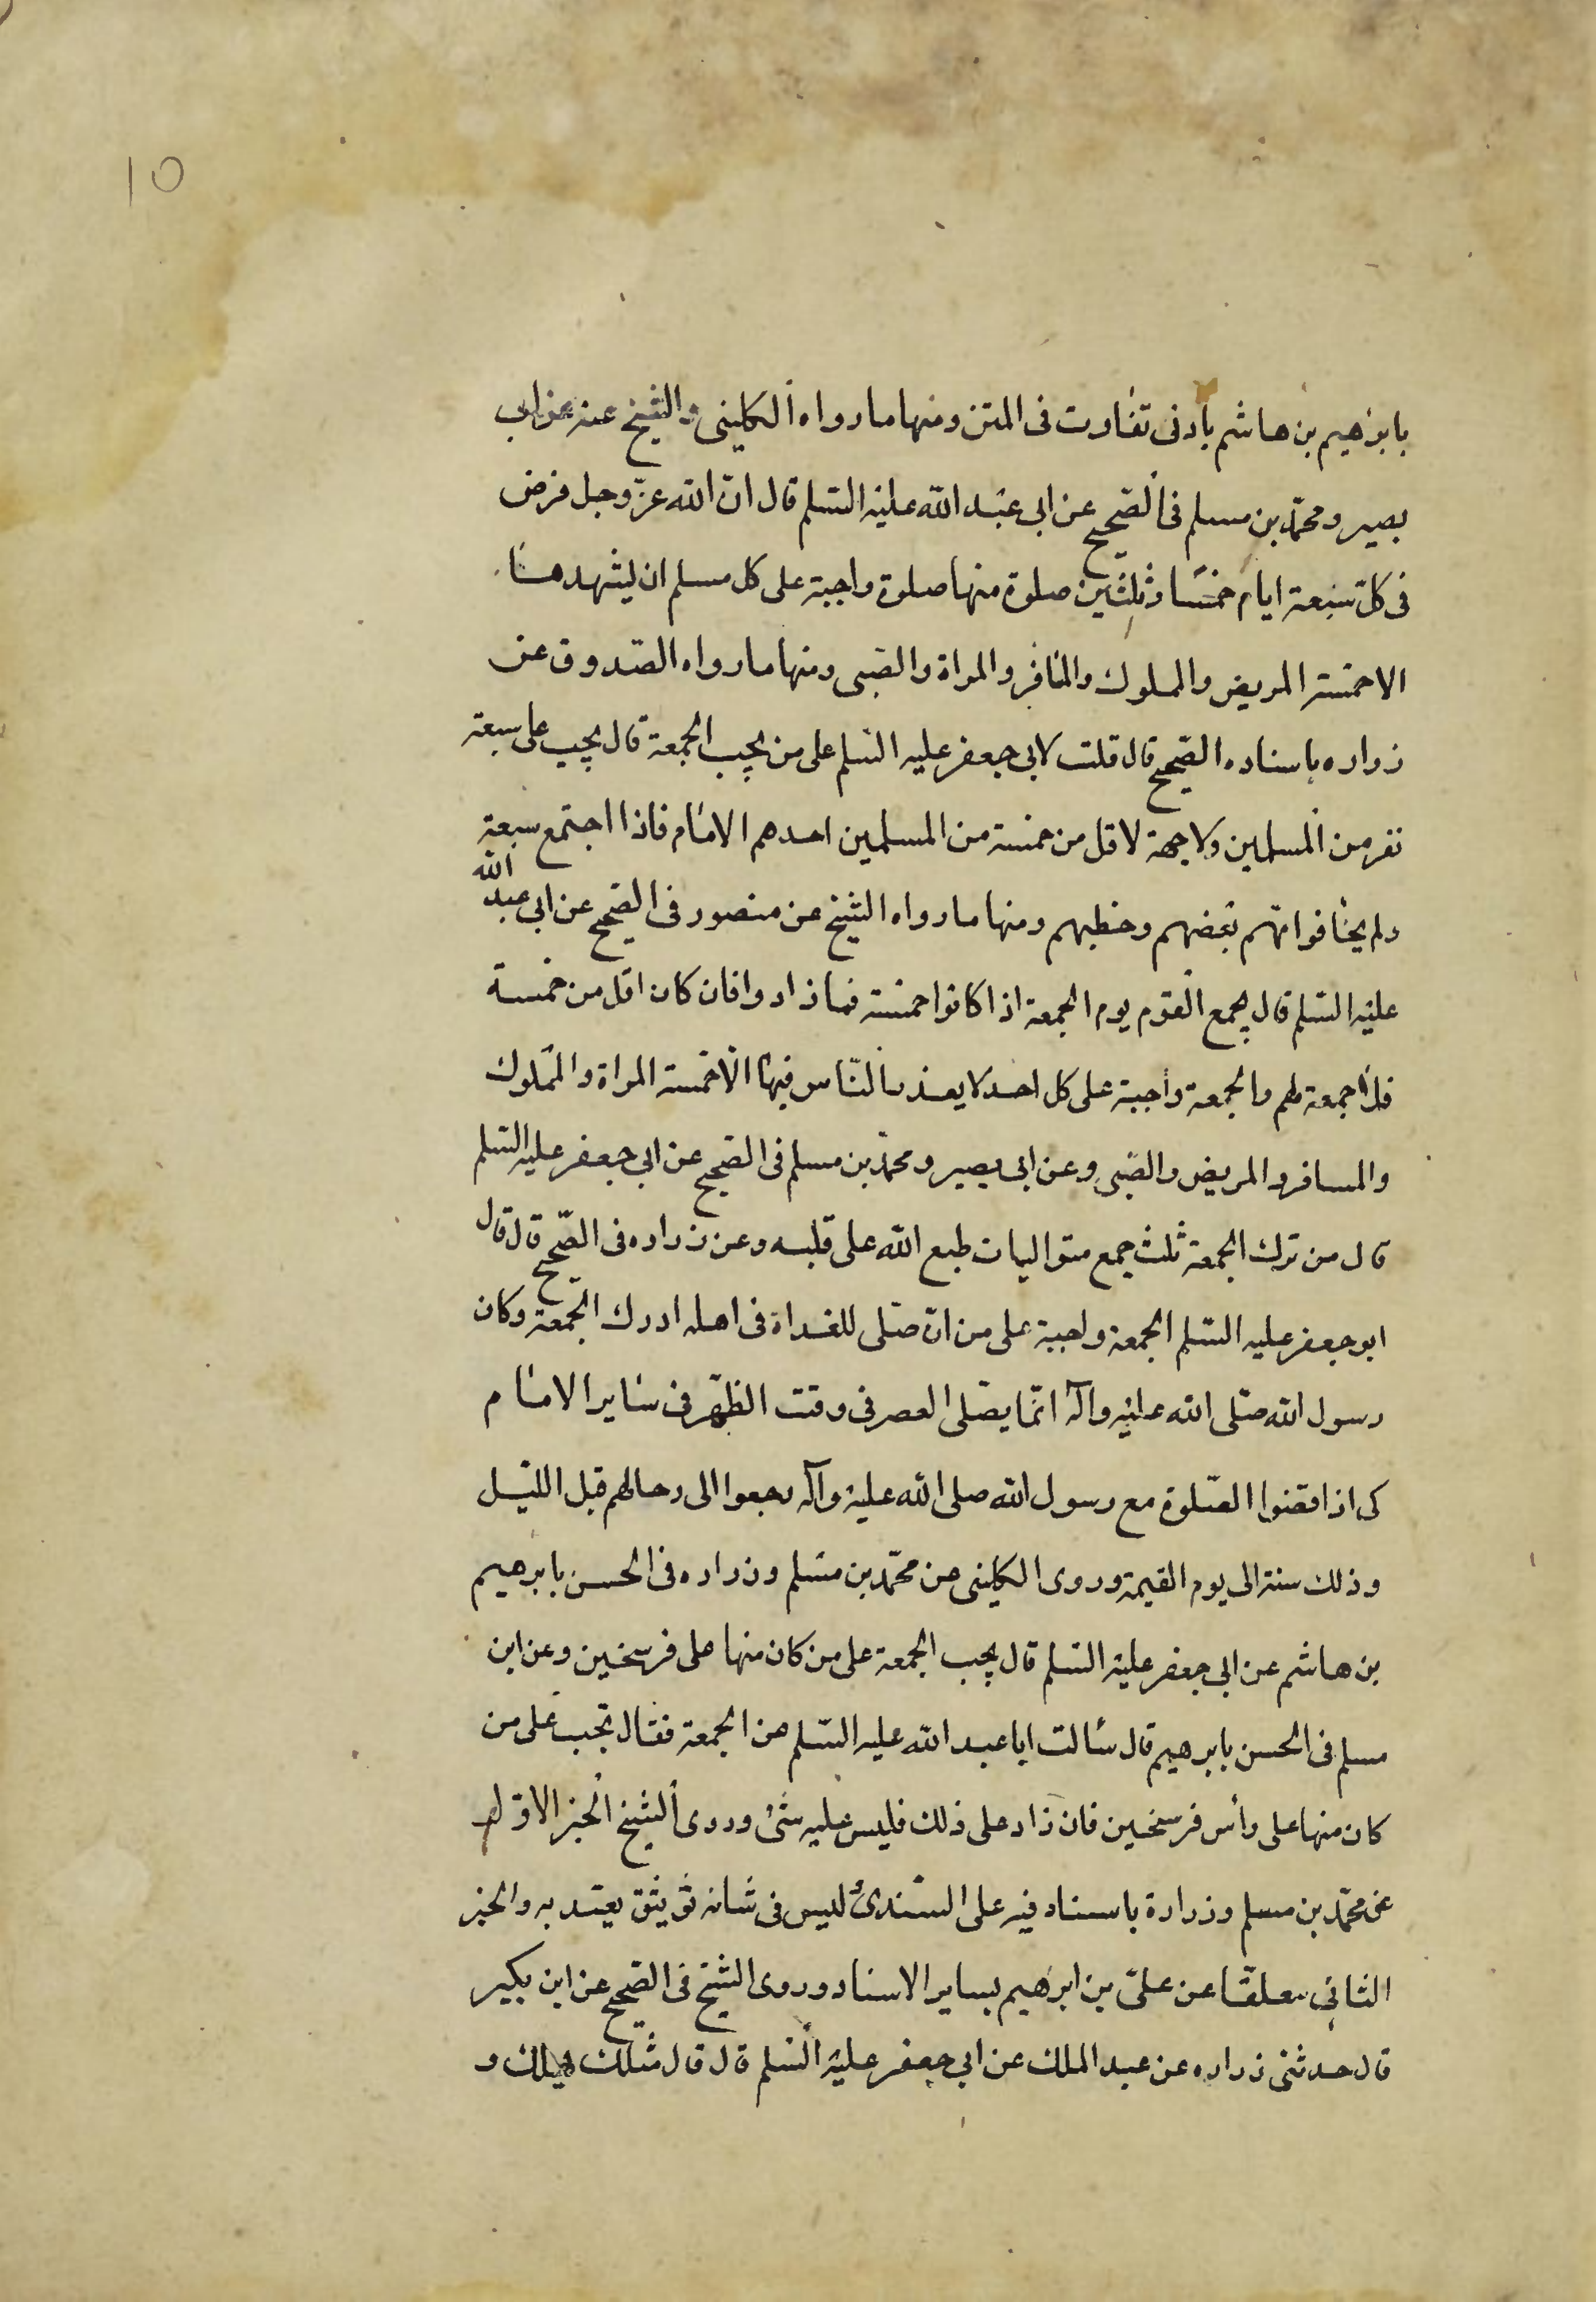 10
بابرهيم بن هاشم بادنى تفاوت فى المتن ومنها ما رواه الكلينى والشيخ عنه عن ابى
بصير ومحمّد بن مسلم فى الصّحيح عن ابى عبد الله عليه السّلم قال انّ الله عزّ وجل فرض
فى كلّ سبعة ايام خمسًا وثلثين صلوة منها صلوة واجبة على كل مسلم ان يشهدها
الا خمسة المريض والمملوك والمسافر والمراة والصّبى ومنها ما رواه الصّدوق عن
زراره باسناده الصّحيح قال قلت لابى جعفر عليه السّلم على من يجب الجمعة قال يجب على سبعة
نفر من المسلمين ولا جمعة لاقل من خمسة من المسلمين احدهم الامام فاذا اجتمع سبعة
ولم يخافوا امّهم بعضهم وخطبهم ومنها ما رواه الشيخ عن منصور فى الصّحيح عن ابى عبد الله
عليه السّلم قال يجمع القوم يوم الجمعة اذا كانوا خمسة فما زادوا فان كان اقل من خمسة
فلا جمعة لهم والجمعة واجبة على كل احد لا يعذر النّاس فيها الّا خمسة المراة والمملوك
والمسافر والمريض والصّبى وعن ابى بصير ومحمّد بن مسلم فى الصّحيح عن ابى جعفر عليه السّلم
قال من ترك الجمعة ثلث جمع متواليات طبع الله على قلبه وعن زراره فى الصّحيح قال قال
ابو جعفر عليه السّلم الجمعة واجبة على من ان صلّى للغداة فى اهله ادرك الجمعة وكان
رسول الله صلّى الله عليه وآله انّما يصلّى العصر فى وقت الظّهر فى ساير الامام
كى اذا قضوا الصّلوة مع رسول الله صلى الله عليه وآله رجعوا الى رحالهم قبل اللّيل
وذلك سنة الى يوم القيمة وروى الكلينى عن محمّد بن مسلم وزراره فى الحسن بابرهيم
بن هاشم عن ابى جعفر عليه السّلم قال يجب الجمعة على من كان منها على فرسخين وعن ابن
مسلم فى الحسن بابرهيم قال سالت ابا عبد الله عليه السّلم عن الجمعة فقال تجب على من
كان منها على رأس فرسخين فان زاد على ذلك فليس عليه شئ وروى الشيخ الخبر الاوّل
عن محمّد بن مسلم وزرارة باسناد فيه على السّندى ليس فى شانه توثيق يعتد به والخبر
الثانى معلقًا عن علىّ بن ابرهيم بساير الاسناد وروى الشيخ فى الصّحيح عن ابن بكير
قال حدثنى زراره عن عبد الملك عن ابى جعفر عليه السّلم قال قال مثلك يهلك و